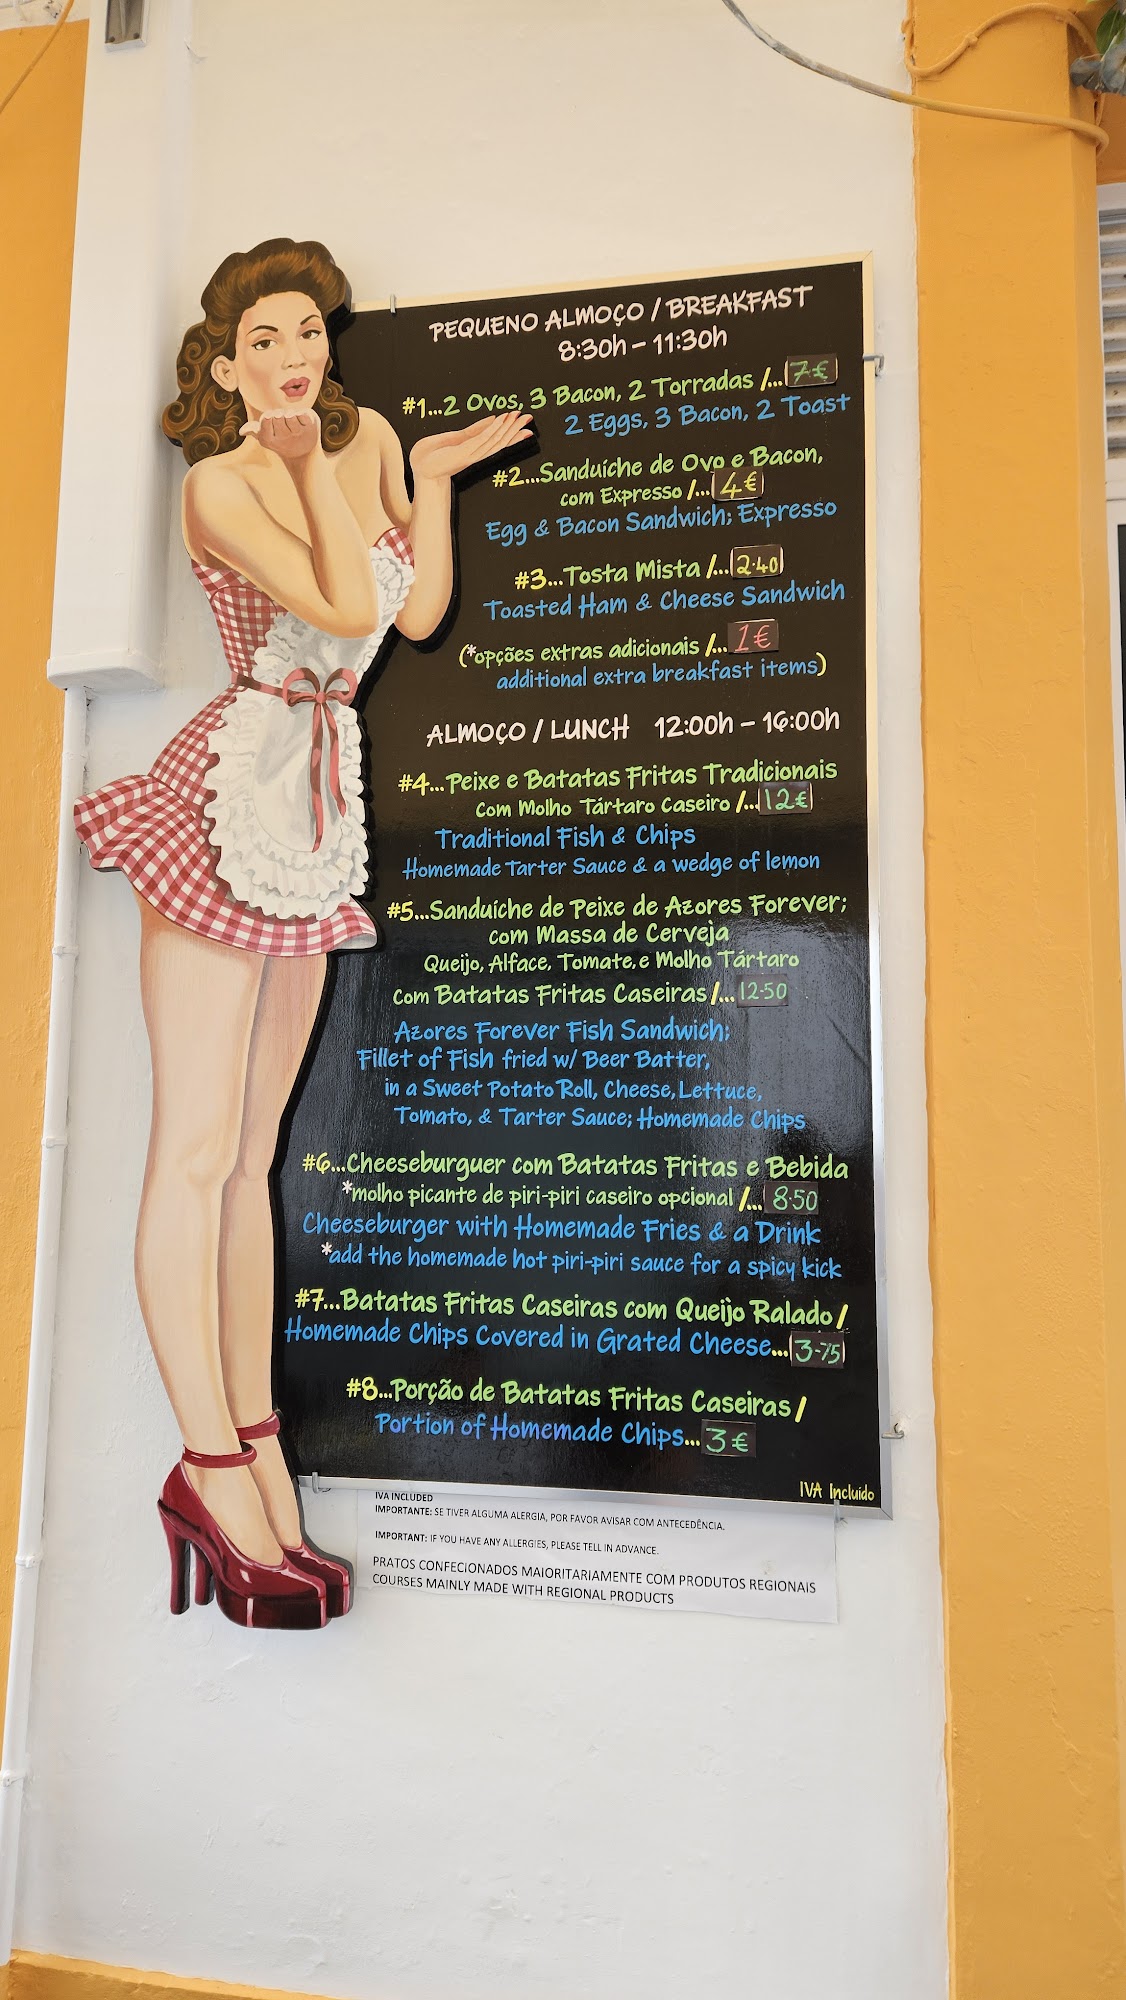 PEQUENO ALMOÇO / BREAKFAST
8:30h – 11:30h
#1...2 Ovos, 3 Bacon, 2 Torradas /... 7€
2 Eggs, 3 Bacon, 2 Toast
#2...Sanduíche de Ovo e Bacon,
com Expresso /... 4€
Egg & Bacon Sandwich; Expresso
#3...Tosta Mista /... 2.40
Toasted Ham & Cheese Sandwich
(*opções extras adicionais /... 1€
additional extra breakfast items)
ALMOÇO / LUNCH 12:00h – 16:00h
#4...Peixe e Batatas Fritas Tradicionais
com Molho Tártaro Caseiro /... 12€
Traditional Fish & Chips
Homemade Tarter Sauce & a wedge of lemon
#5...Sanduíche de Peixe de Azores Forever;
com Massa de Cerveja
Queijo, Alface, Tomate, e Molho Tártaro
com Batatas Fritas Caseiras /... 12.50
Azores Forever Fish Sandwich;
Fillet of Fish fried w/ Beer Batter,
in a Sweet Potato Roll, Cheese, Lettuce,
Tomato, & Tarter Sauce; Homemade Chips
#6...Cheeseburguer com Batatas Fritas e Bebida
*molho picante de piri-piri caseiro opcional /... 8.50
Cheeseburger with Homemade Fries & a Drink
*add the homemade hot piri-piri sauce for a spicy kick
#7...Batatas Fritas Caseiras com Queijo Ralado /
Homemade Chips Covered in Grated Cheese... 3-75
#8...Porção de Batatas Fritas Caseiras /
Portion of Homemade Chips... 3€
IVA Incluído
IVA INCLUDED
IMPORTANTE: SE TIVER ALGUMA ALERGIA, POR FAVOR AVISAR COM ANTECEDÊNCIA.
IMPORTANT: IF YOU HAVE ANY ALLERGIES, PLEASE TELL IN ADVANCE.
PRATOS CONFECIONADOS MAIORITARIAMENTE COM PRODUTOS REGIONAIS
COURSES MAINLY MADE WITH REGIONAL PRODUCTS